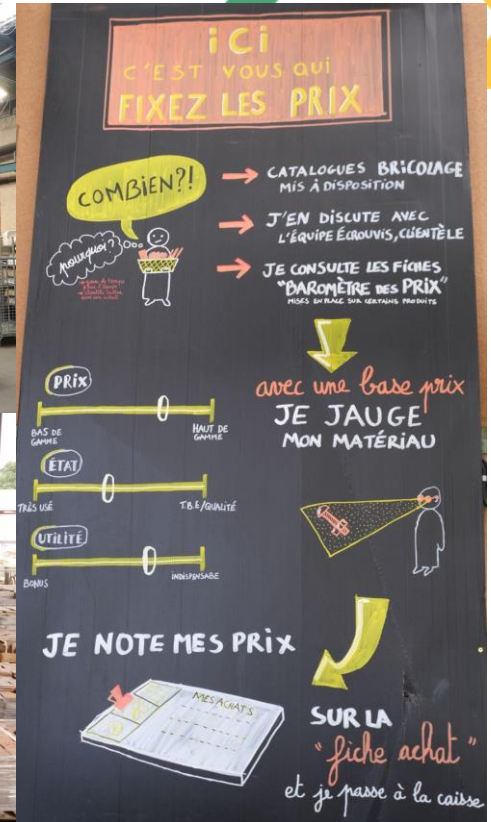 iCi
C'EST VOUS QUi
FIXEZ LES PRIX
COMBIEN?!
pourquoi?
CATALOGUES BRiCOLAGE
MIS À DISPOSITION
J'EN DISCUTE AVEC
L'ÉQUIPE ÉCROUVIS, CLIENTÈLE
JE CONSULTE LES FICHES
"BAROMÈTRE DES PRIX"
MISES EN PLACE SUR CERTAINS PRODUITS
avec une base prix
JE JAUGE
MON MATÉRIAU
PRiX
BAS DE
GAMME
HAUT DE
GAMME
ÉTAT
TRÈS USÉ
T.B.E/QUALITÉ
UTiLiTÉ
BONUS
INDISPENSABE
JE NOTE MES PRiX
MES ACHATS
SUR LA
"fiche achat"
et je passe à la caisse